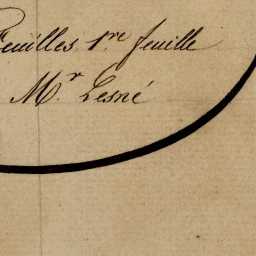 Feuilles 1.re feuille
Mr. Lesné